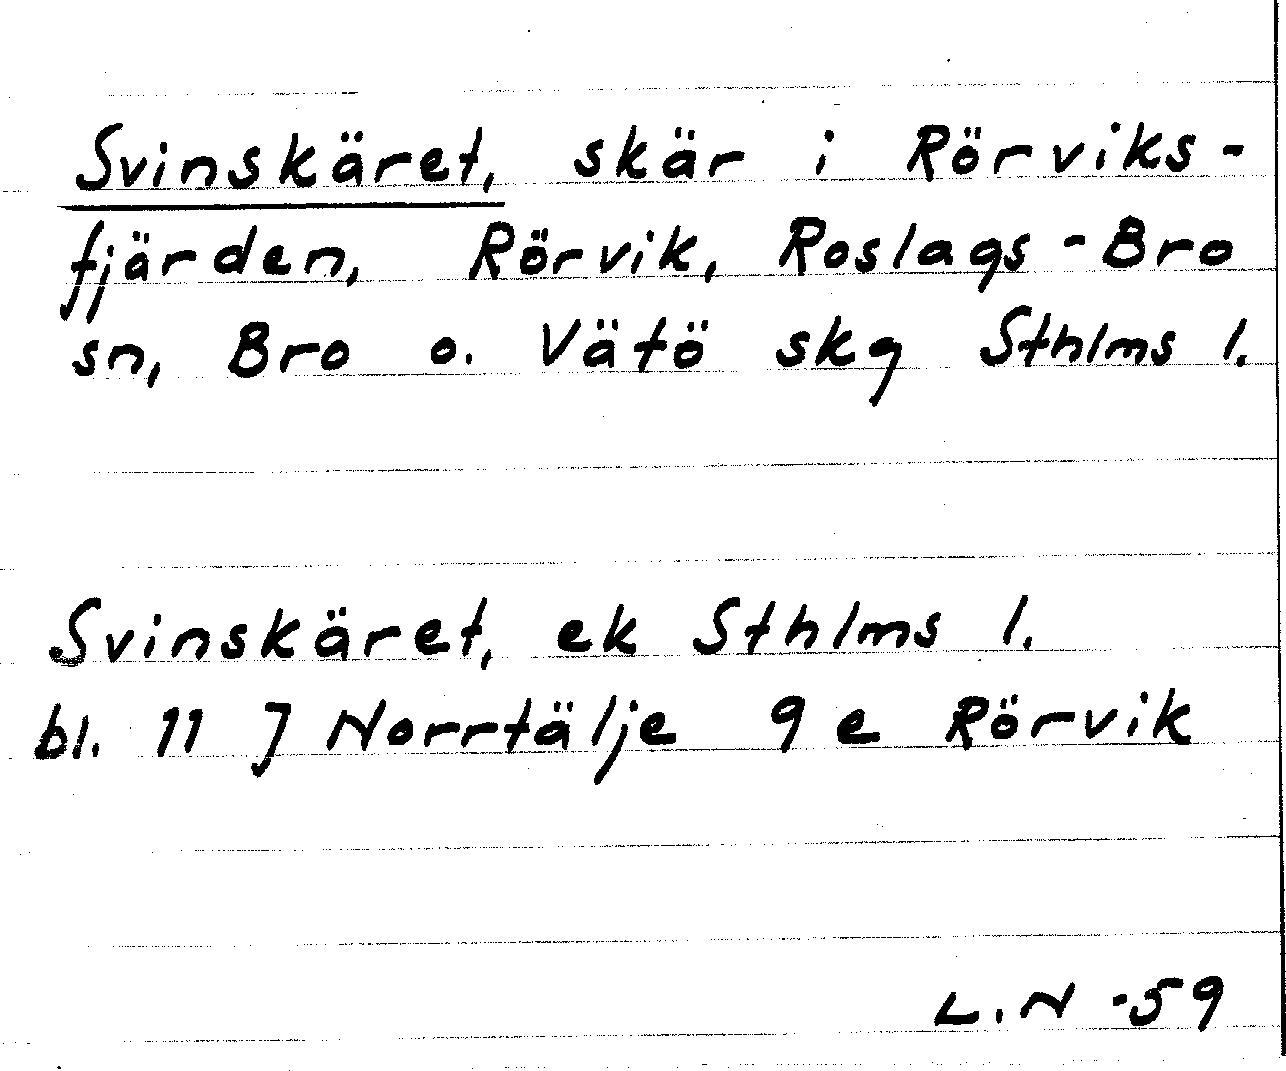 Svinskäret, skär i Rörviks-
fjärden, Rörvik, Roslags-Bro
sn, Bro o. Vätö skg Sthlms l.
Svinskäret, ek Sthlms l.
bl. 11 J Norrtälje 9 e Rörvik
L.N -59